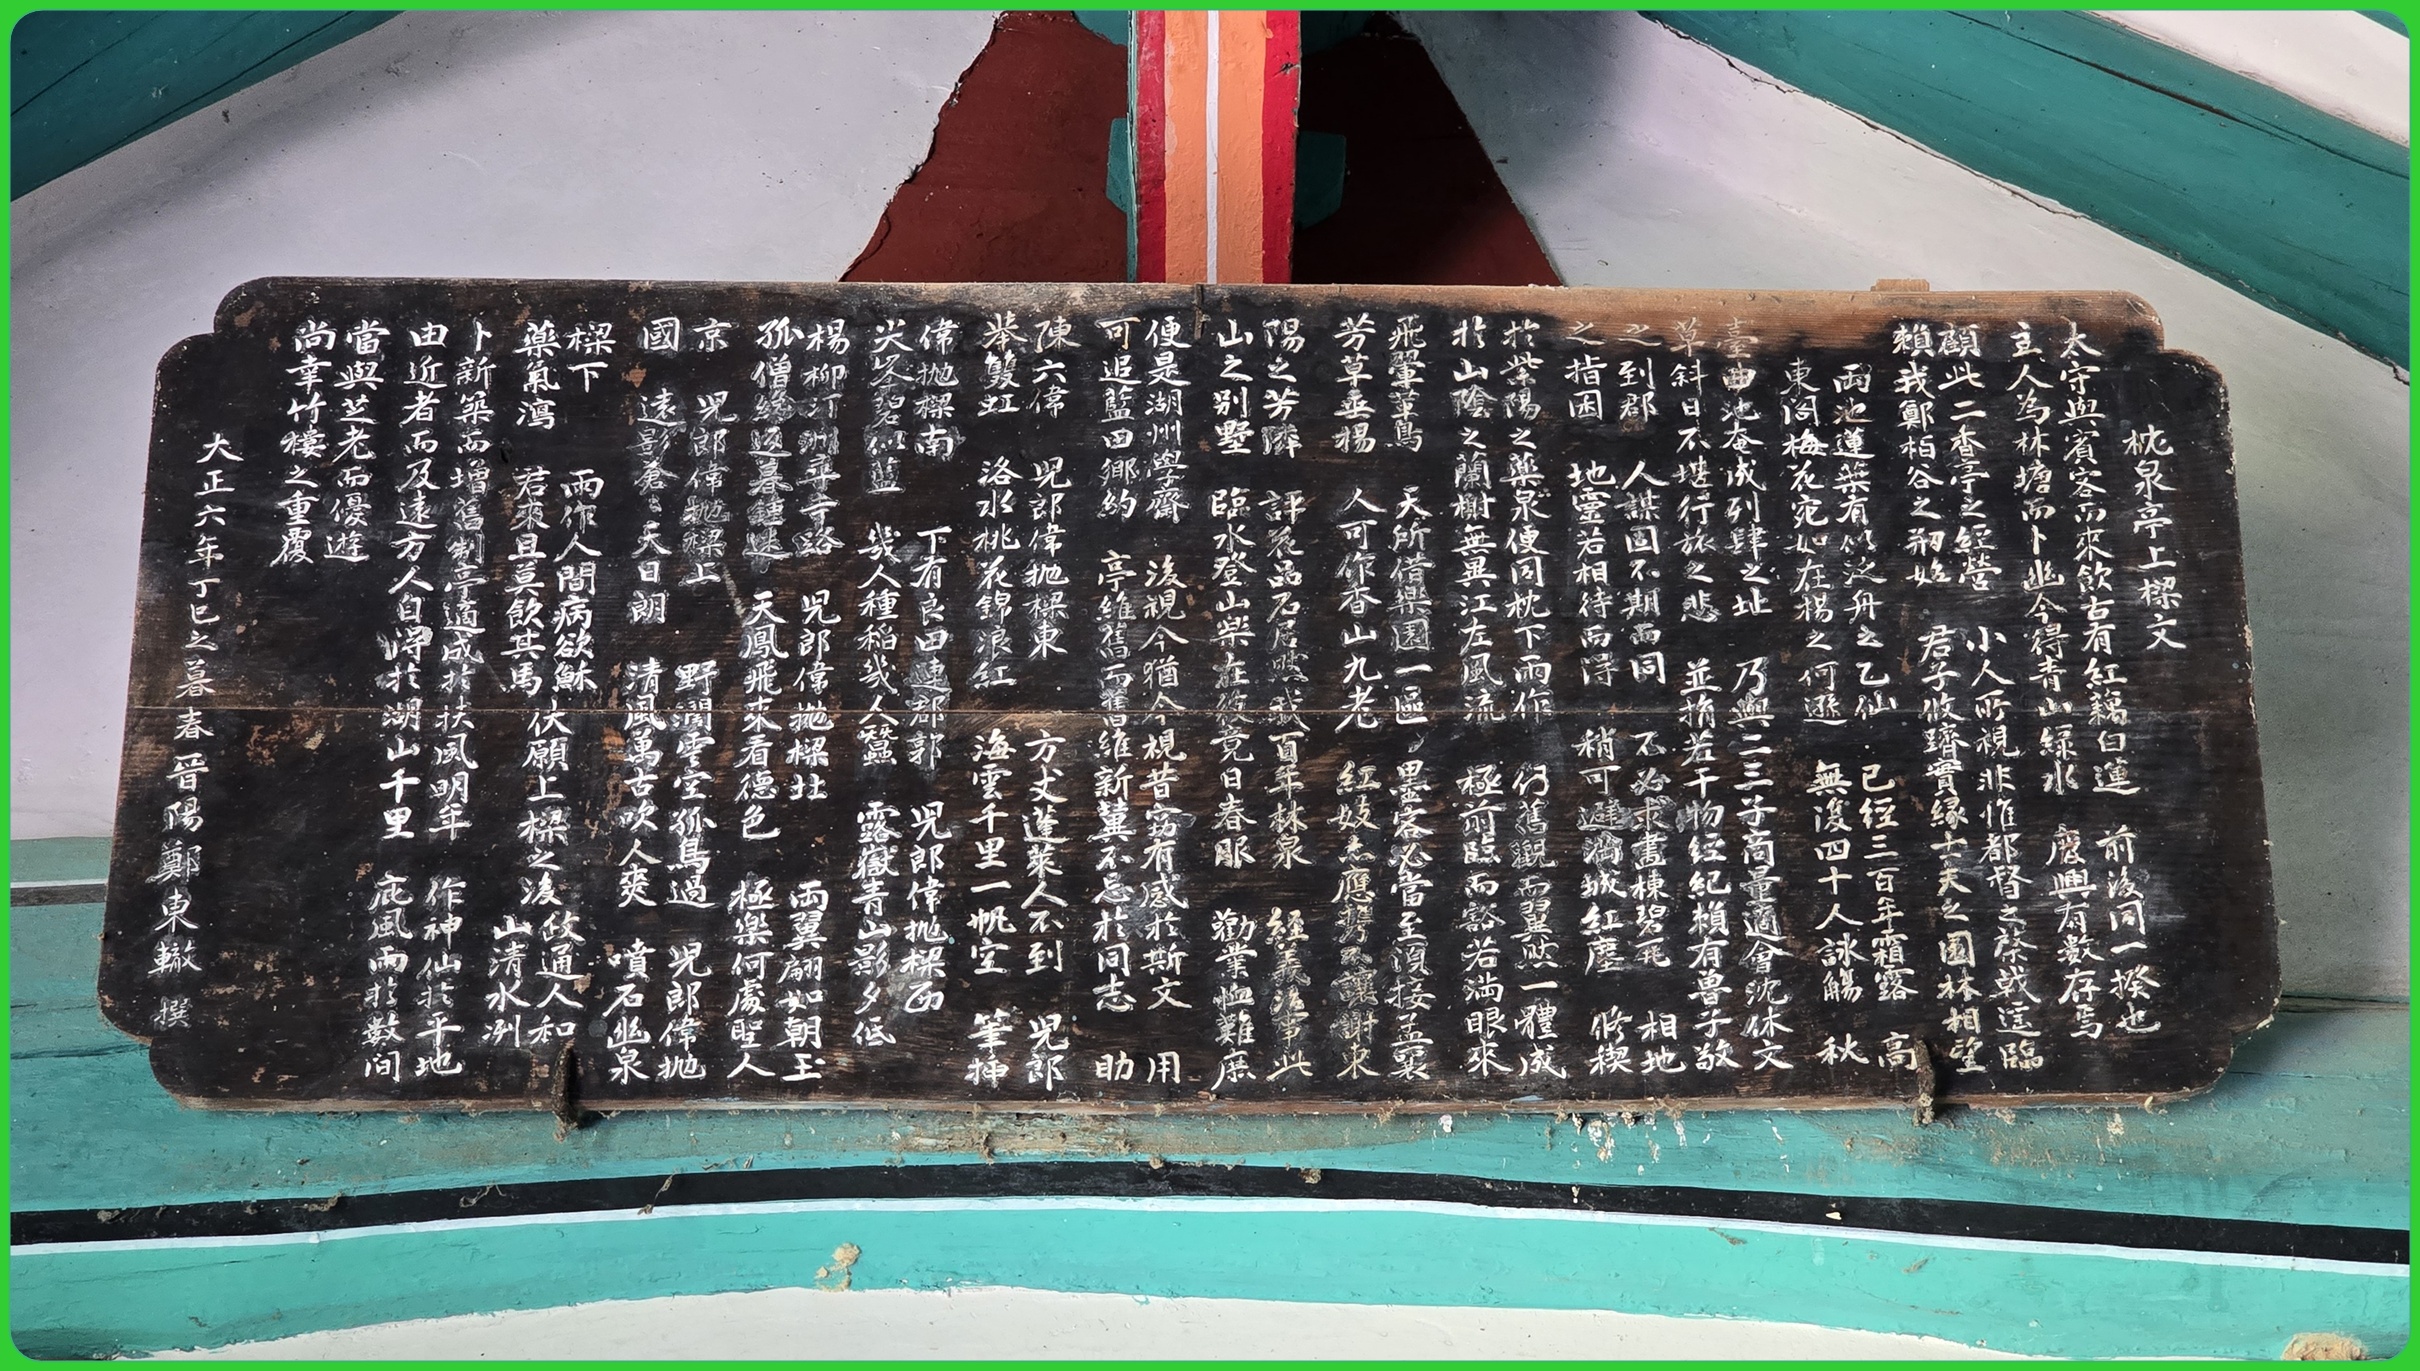 枕泉亭上樑文
太守與賓客而來飲古有紅藕白蓮 前後同一揆也
主人為林塘而卜幽今得青山綠水 廢興有數存焉
顧此二香亭之經營 小人所視非惟都督之棨戟遙臨
賴我鄭栢谷之刱始 君子攸躋實緣士夫之園林相望
兩池蓮葉有似泛舟之乙仙 已經三百年霜露 高
東閣梅花宛如在楊之何遜 無復四十人詠觴 秋
臺曲池奄成列肆之址 乃與二三子商量適會沈休文
草斜日不堪行旅之悲 並指若干物經紀賴有魯子敬
之到郡 人謀固不期而同 不必求畵棟碧甍 相地
之指囷 地靈若相待而得 稍可避満城紅塵 修禊
於紫陽之藥泉便同枕下雨作 仍舊觀而翼然一體成
於山陰之蘭榭無異江左風流 極前臨而豁若満眼來
飛翬革鳥 天所借樂園一區 墨客必當至須接孟襄
芳草垂楊 人可作香山九老 紅妓亦應携不讓謝東
陽之芳隣 評花品石居然我百年林泉 經義治事此
山之別墅 臨水登山樂在彼竟日春服 勸業恤難庶
便是湖州學齋 後視今猶今視昔窃有感於斯文 用
可追藍田鄉約 亭維舊而舊維新冀不忘於同志 助
陳六偉 兒郎偉抛樑東 方丈蓬萊人不到 兒郎
擧雙虹 洛水桃花錦浪紅 海雲千里一帆空 筆抻
偉抛樑南 下有良田連郡郭 兒郎偉抛樑西
尖峯碧似藍 幾人種稲幾人蠶 露嶽青山影夕低
楊柳汀洲尋寺路 兒郎偉抛樑北 兩翼翩如朝玉
孤僧緣返暮鍾迷 天鳳飛來看德色 極樂何處聖人
京 兒郎偉抛樑上 野濶雲空孤鳥過 兒郎偉抛
國 遠影蒼〻天日朗 清風萬古吹人爽 噴石幽泉
樑下 雨作人間病欲穌 伏願上樑之後 政通人和
藥氣瀉 君來且莫飲其馬 山清水洌
卜新築而增舊制亭適成於扶風明年 作神仙於平地
由近者而及遠方人自得於湖山千里 庇風雨於數間
當與芝老而優遊
尚幸竹樓之重覆
大正六年丁巳之暮春晉陽鄭東轍 撰